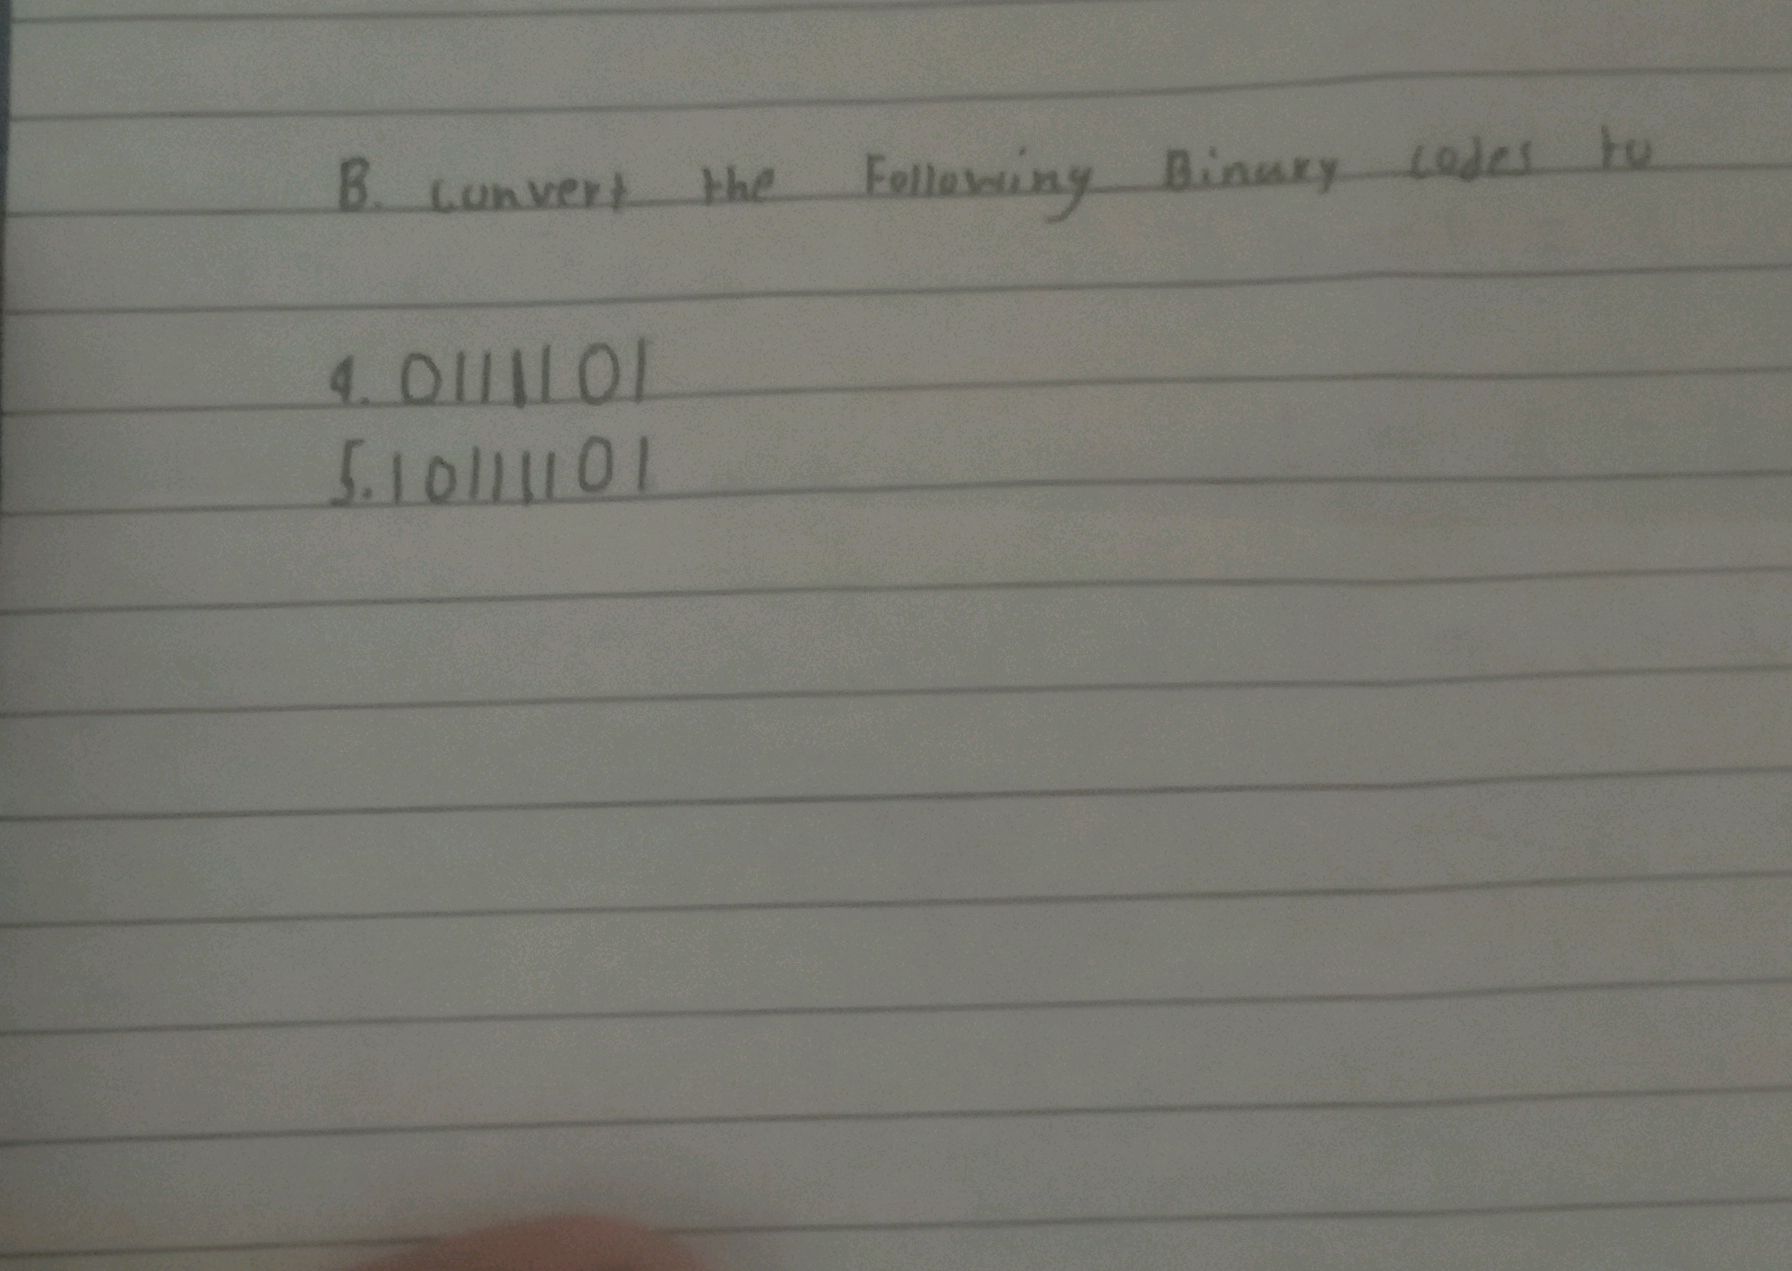 B. convert the Following Binary codes to
4. 01111101
5. 10111101